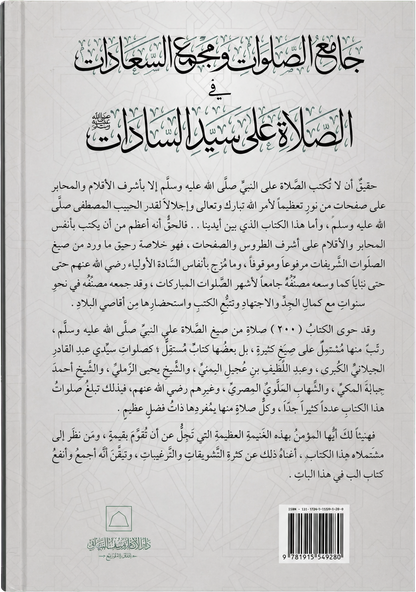 جامع الصلوات ومجمع السعادات
في
الصلاة على سيد السادات ﷺ
حقيقٌ أن لا تُكتب الصَّلاة على النبيِّ صلَّى الله عليه وسلَّم إلا بأشرف الأقلام والمحابر
على صفحات من نورٍ تعظيماً لأمر الله تبارك وتعالى وإجلالاً لقدر الحبيب المصطفى صلَّى
الله عليه وسلم، وأما هذا الكتاب الذي بين أيدينا.. فالحقُّ أنه أعظم من أن يكتب بأنفس
المحابر والأقلام على أشرف الطروس والصفحات، فهو خلاصة رحيق ما ورد من صيغ
الصلوات الشَّريفات مرفوعاً وموقوفاً، وما مُزج بأنفاس السَّادة الأولياء رضي الله عنهم حتى
حتى نيّاياً كما وسعه مصنِّفُهُ جامعاً لأشهر الصَّلوات المباركات، وقد جمعه مصنِّفُه في نحو
سنواتٍ مع كمال الجِدِّ والاجتهادِ وتتبُّع الكتبِ واستحضارِها من أقاصي البلادِ.
وقد حوى الكتابُ (٢٠٠) صلاةٍ من صيغ الصَّلاة على النبي صلى الله عليه وسلم،
رتَّبَ منها مُشتملٌ على صِيَغٍ كثيرةٍ، بل بعضُها كتابٌ مُستقلٌّ؛ كصلواتِ سيِّدي عبدِ القادرِ
الجيلانيِّ الكُبرى، وعبدِ اللَّطيفِ بن عُجيلٍ اليمنيِّ، والشَّيخِ يحيى الزَّمليِّ، والشَّيخِ أحمدَ
جبابةَ المكيِّ، والشِّهابِ المَلَّويِّ المِصريِّ، وغيرِهم رضي الله عنهم، فبذلك تبلغُ صلواتُ
هذا الكتابِ عدداً كثيراً جدّاً، وكلُّ صلاةٍ منها بمُفردِها ذاتُ فضلٍ عظيمٍ.
فهنيئاً لك أيُّها المؤمنُ بهذه الغنيمةِ العظيمةِ التي تَجِلُّ عن أن تُقوَّمَ بقيمةٍ، ومَن نظر إلى
مشتملاه هذا الكتابِ، أغناهُ ذلك عن كثرةِ التَّشويقاتِ والتَّرغيباتِ، وتيقَّنَ أنَّه أجمعُ وأنفعُ
كتابٍ ألب في هذا الباب.
9781915549280